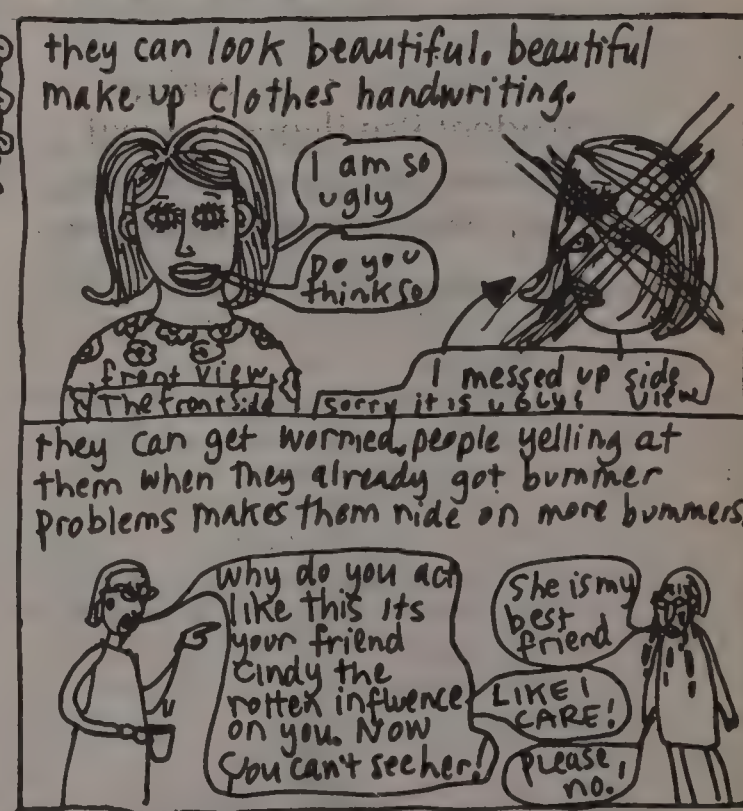 they can look beautiful. beautiful
make up clothes handwriting.
I am so
ugly
Do you
think so
front view
The frontside
I messed up side
view
sorry it is ugly!
they can get worried. people yelling at
them when they already got bummer
problems makes them ride on more bummers.
why do you act
like this its
your friend
cindy the
rotten influence
on you. Now
you can't see her!
She is my
best
friend
LIKE I
CARE!
please,
no.